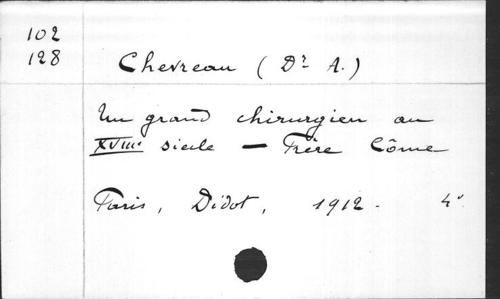 102
128
Chevreau (Dr A.)
Un grand chirurgien au
XVIIIe siecle — Frère Côme
Paris, Didot, 1912. 4°